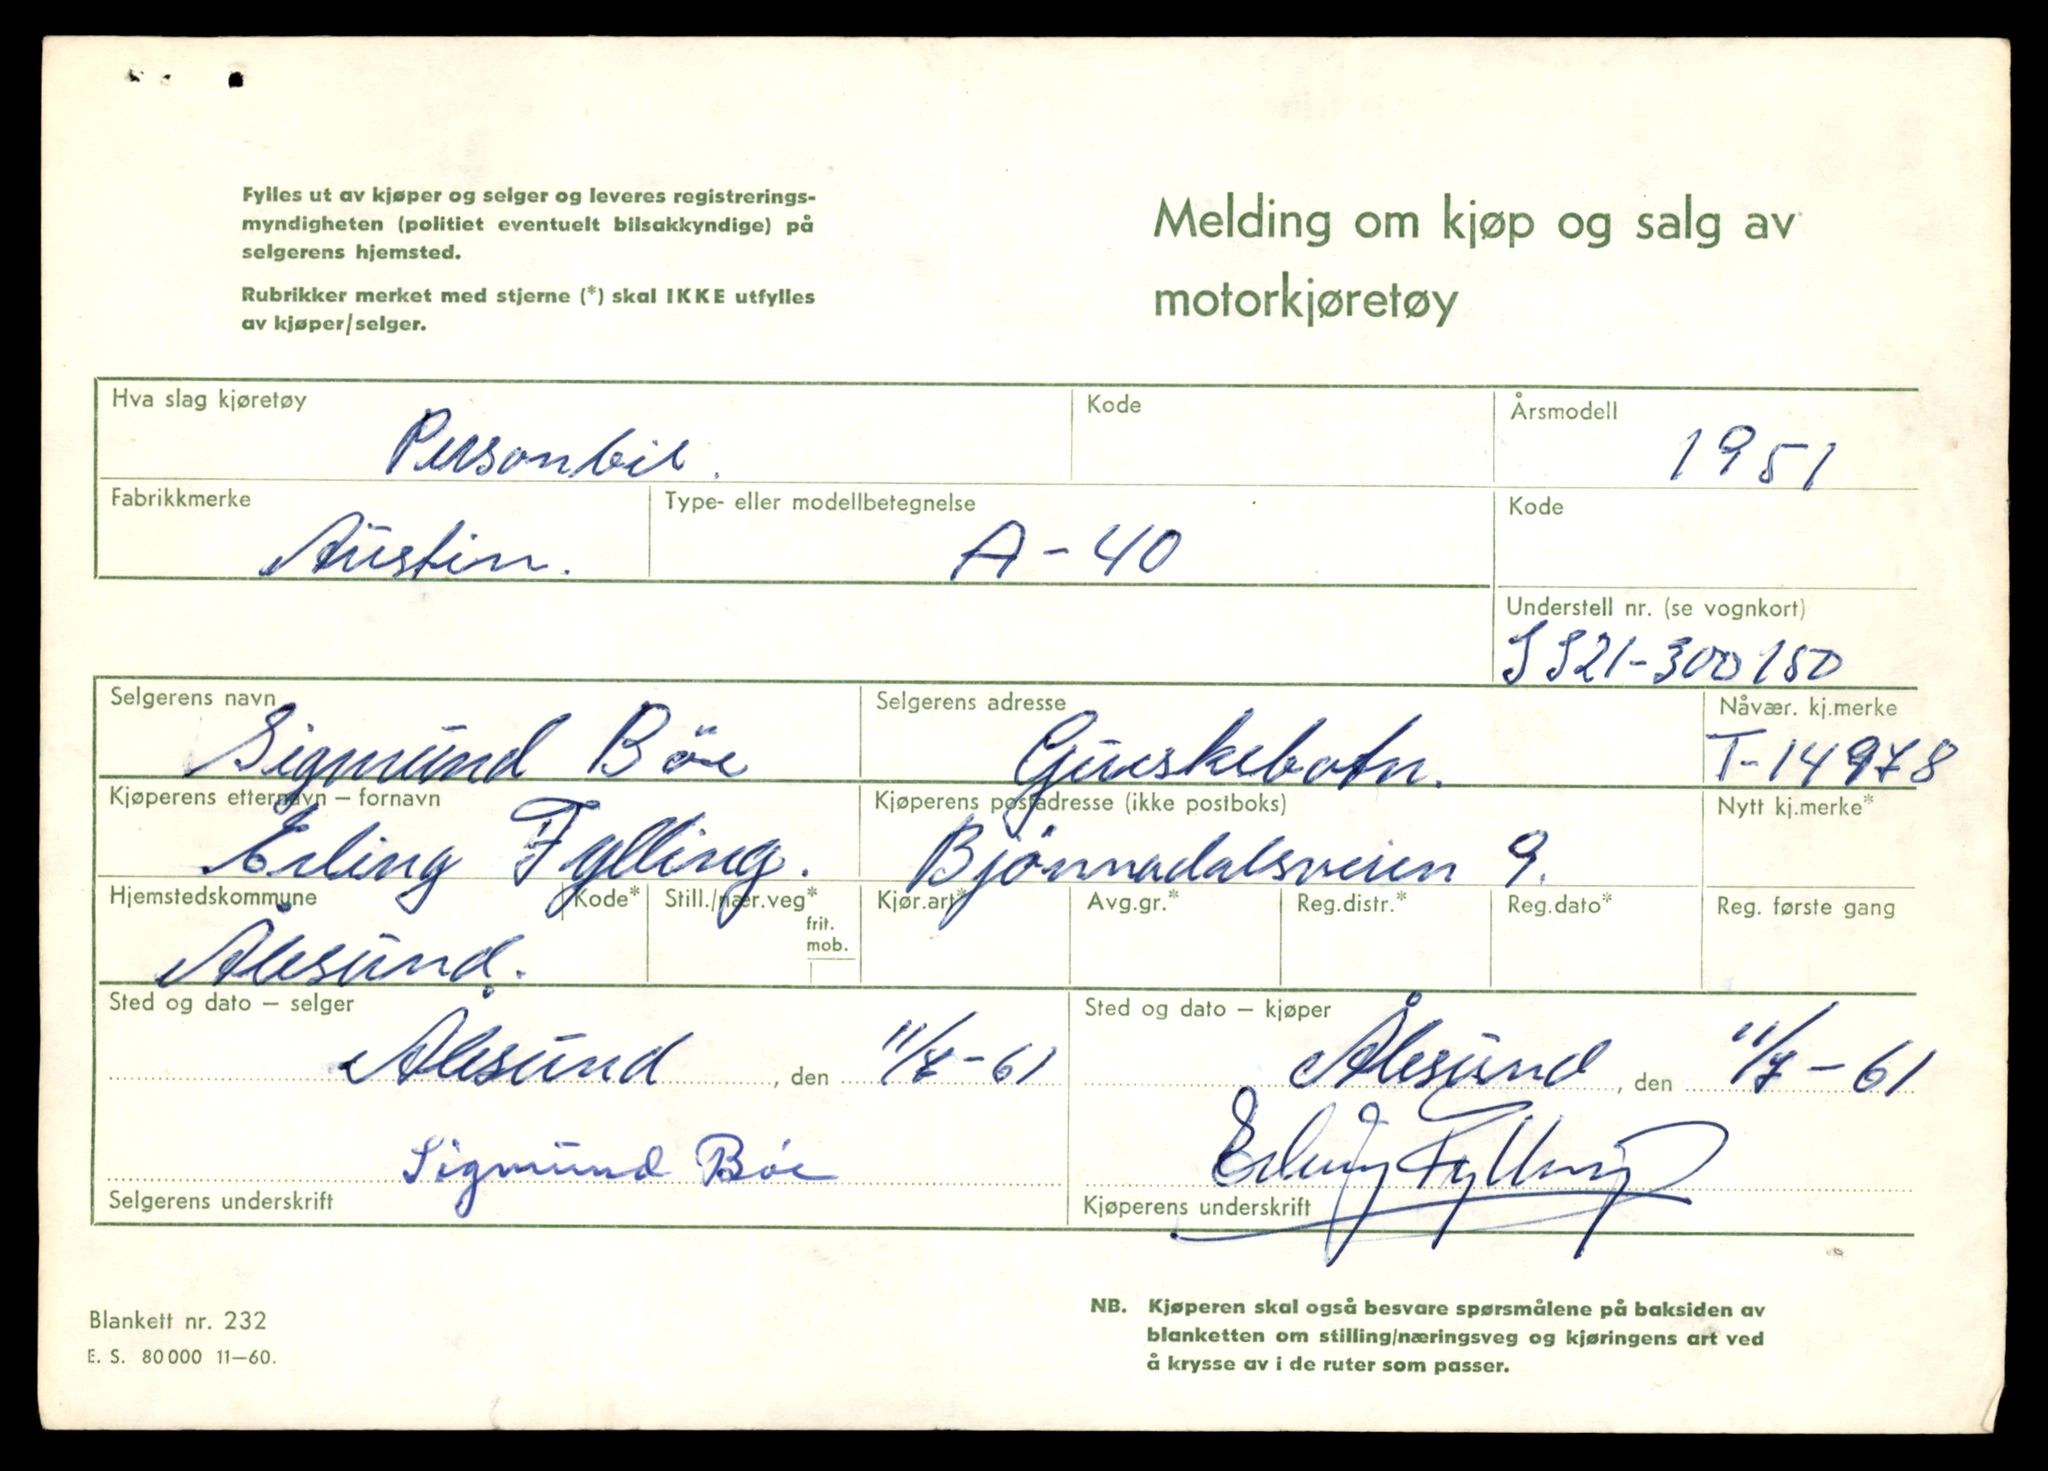 Fylles ut av kjøper og selger og leveres registrerings-
myndigheten (politiet eventuelt bilsakkyndige) på
selgerens hjemsted.
Rubrikker merket med stjerne (*) skal IKKE utfylles
av kjøper/selger.
Melding om kjøp og salg av
motorkjøretøy
Hva slag kjøretøy Kode Årsmodell
Personbil. 1951
Fabrikkmerke Type- eller modellbetegnelse Kode
Austin. A-40
Understell nr. (se vognkort)
SS21-300150
Selgerens navn Selgerens adresse Nåvær. kj.merke
Sigmund Böe Gurskebotn. T-14978
Kjøperens etternavn – fornavn Kjøperens postadresse (ikke postboks) Nytt kj.merke*
Erling Fylling. Bjönnadalsveien 9.
Hjemstedskommune Kode* Still./nær.veg* Kjør.art* Avg.gr.* Reg.distr.* Reg.dato* Reg. første gang
frit.
mob.
Ålesund.
Sted og dato – selger Sted og dato – kjøper
Ålesund, den 11/7-61 Ålesund, den 11/7-61
Sigmund Böe Erling Fylling
Selgerens underskrift Kjøperens underskrift
Blankett nr. 232
E. S. 80000 11–60.
NB. Kjøperen skal også besvare spørsmålene på baksiden av
blanketten om stilling/næringsveg og kjøringens art ved
å krysse av i de ruter som passer.